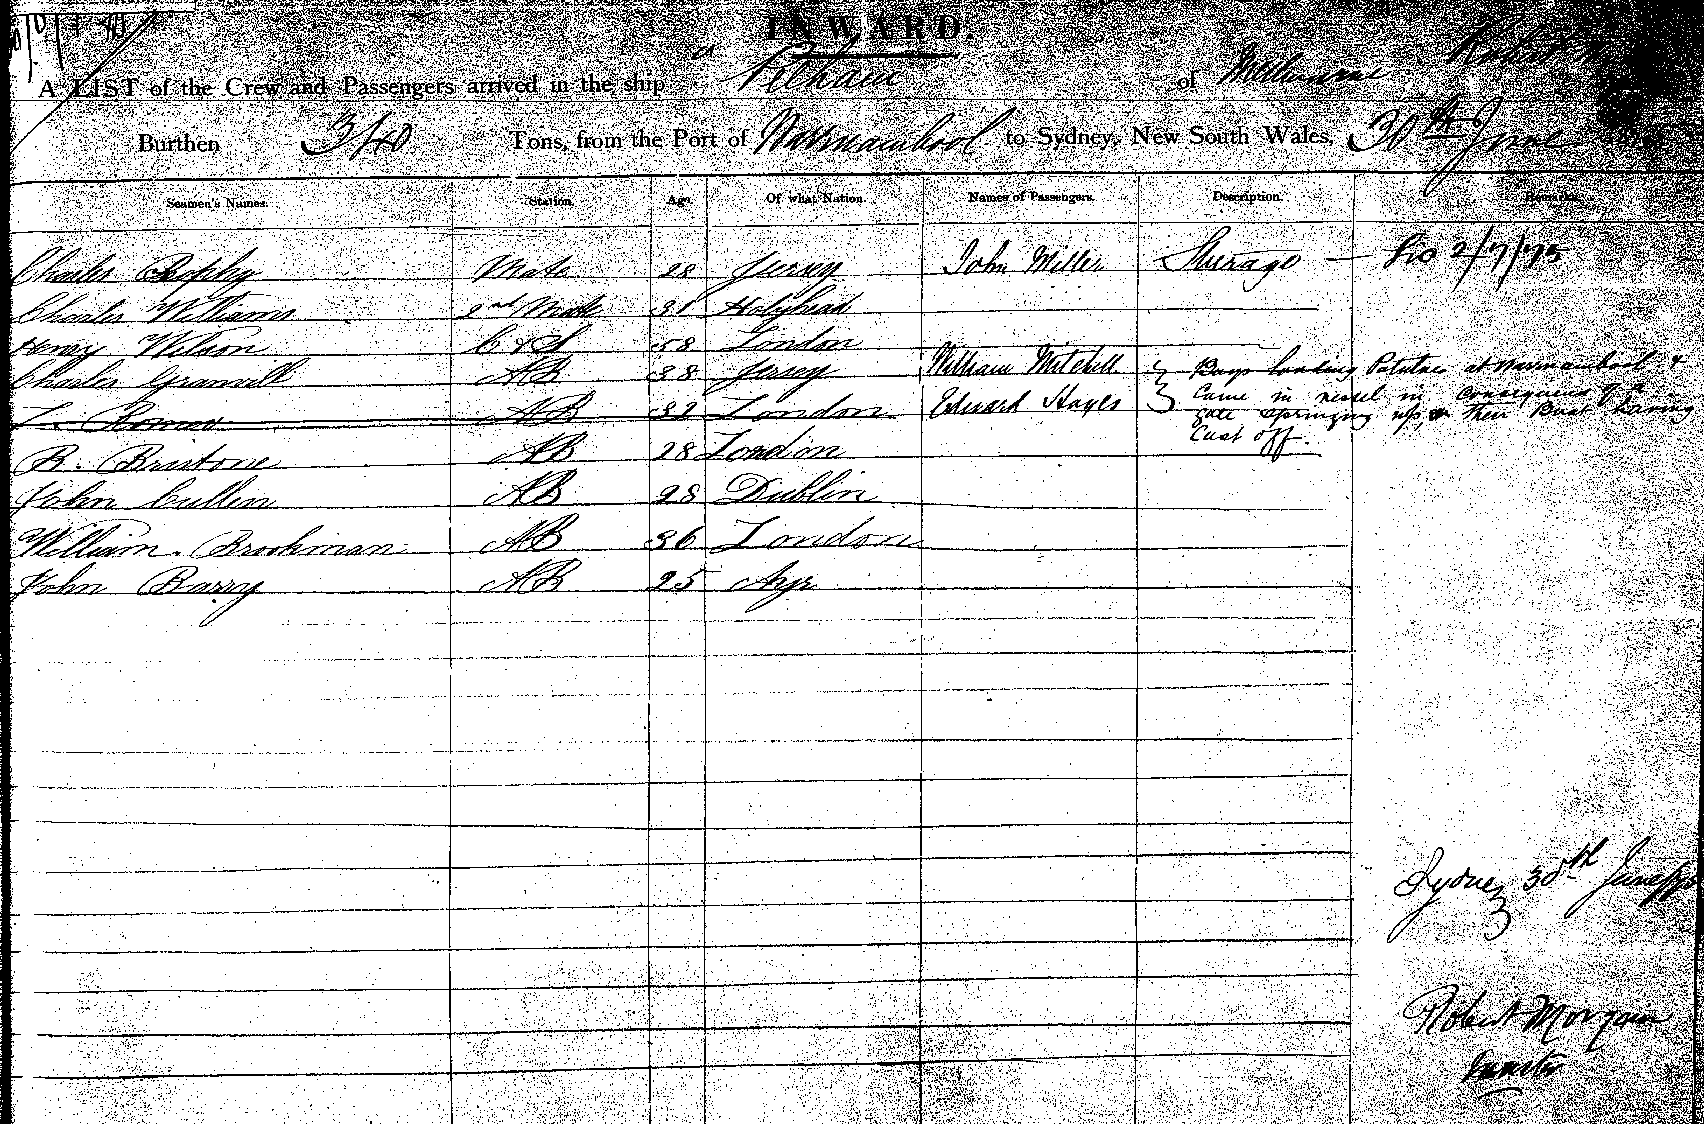 INWARD.
A LIST of the Crew and Passengers arrived in the ship of Melbourne Robert
Burthen 340 Tons, from the Port of Warrnambool to Sydney, New South Wales, 30th June
Seamen's Names. Station. Age. Of what Nation. Names of Passengers. Description. Remarks.
Charles Mate 28 Jersey John Miller Steerage — 2/7/75
Charles Williams 2nd Mate 31 Holyhead
Henry Wilson C & S 58 London
Charles AB 38 Jersey William Mitchell Boys loading Potatoes at Warrnambool &
AB 32 London Edward Hayes Came in vessel in consequence of a
gale springing up, & their Boat having
Cast off.
R. AB 28 London
John Cullen AB 28 Dublin
William Brookman AB 36 London
John Barry AB 25 Ayr
Sydney 30th June
Robert Morgan
Master